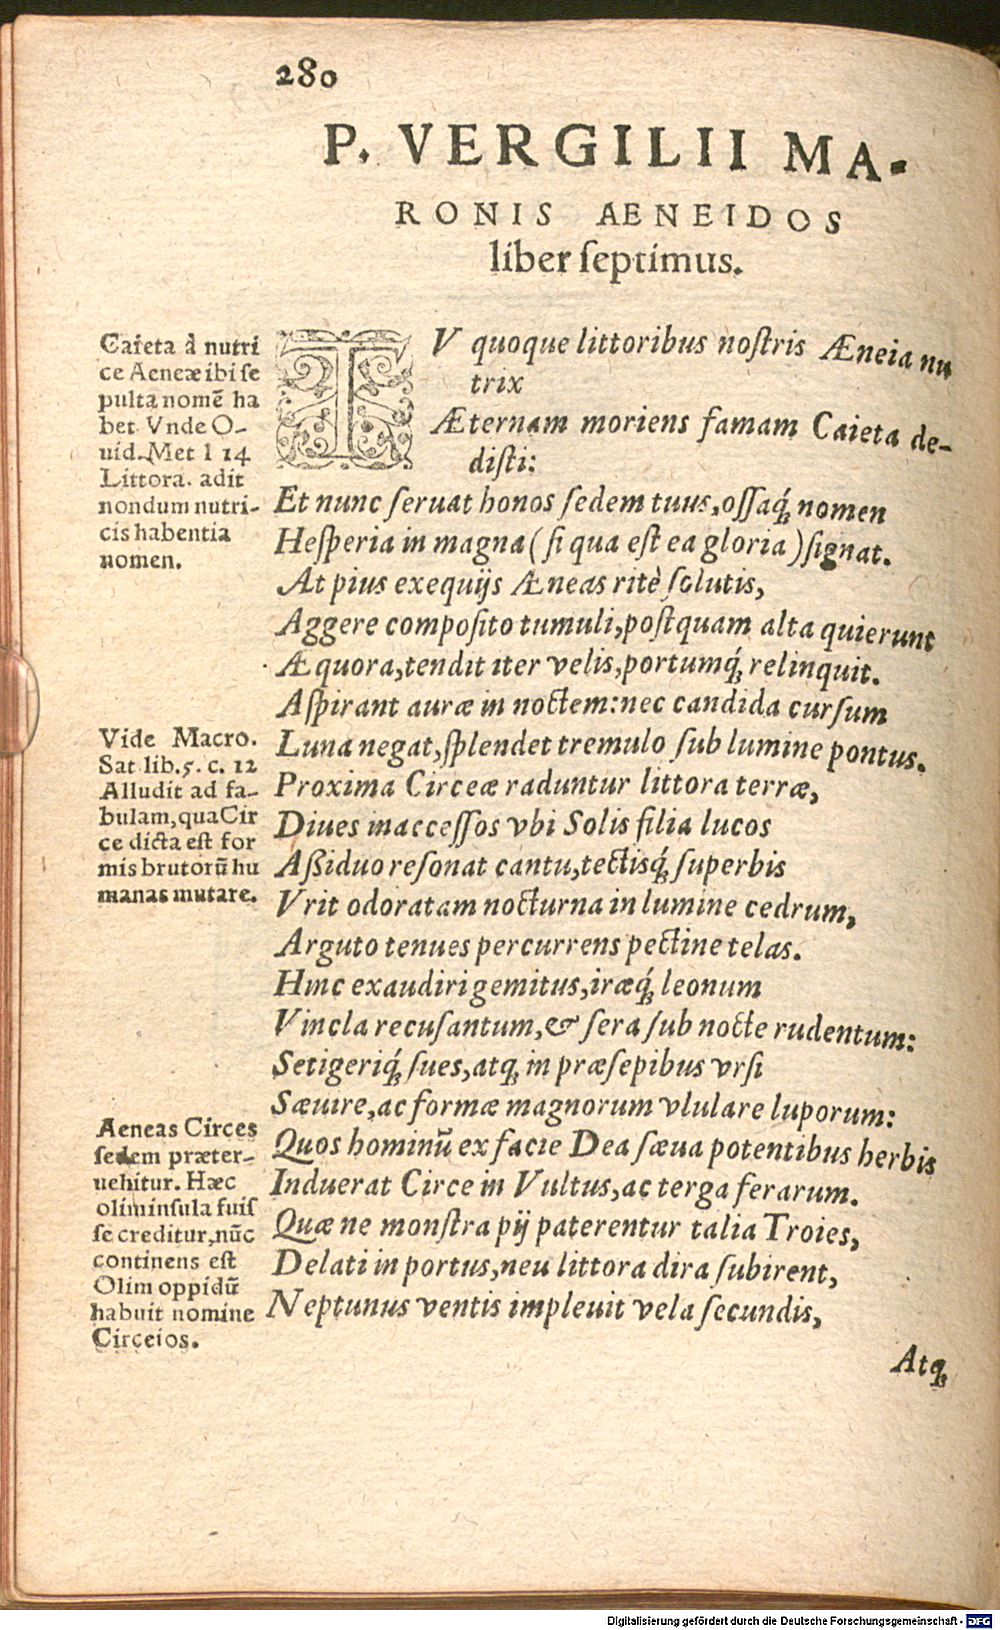 280
P. VERGILII MA-
RONIS AENEIDOS
liber ſeptimus.
Caieta à nutri
ce Aeneæ ibi ſe
pulta nomē ha
bet Vnde O-
uid. Met l 14
Littora. adit
nondum nutri-
cis habentia
nomen.
TV quoque littoribus noſtris Æneia nu
trix
Æternam moriens famam Caieta de-
diſti:
Et nunc ſeruat honos ſedem tuus, oſſaq́; nomen
Heſperia in magna (ſi qua eſt ea gloria) ſignat.
At pius exequijs Æneas ritè ſolutis,
Aggere compoſito tumuli, poſtquam alta quierunt
Æquora, tendit iter velis, portumq́; relinquit.
Aſpirant auræ in noctem: nec candida curſum
Vide Macro.
Sat lib. 5. c. 12
Alludit ad fa-
bulam, qua Cir
ce dicta eſt for
mis brutorū hu
manas mutare.
Luna negat, ſplendet tremulo ſub lumine pontus.
Proxima Circeæ raduntur littora terræ,
Diues inacceſſos vbi Solis filia lucos
Aßiduo reſonat cantu, tectisq́; ſuperbis
Vrit odoratam nocturna in lumine cedrum,
Arguto tenues percurrens pectine telas.
Hinc exaudiri gemitus, iræq́; leonum
Vincla recuſantum, & ſera ſub nocte rudentum:
Setigeriq́; ſues, atq; in præſepibus vrſi
Sæuire, ac formæ magnorum vlulare luporum:
Aeneas Circes
ſedem præter-
uehitur. Hæc
olim inſula fuiſ
ſe creditur, nūc
continens eſt
Olim oppidū
habuit nomine
Circeios.
Quos hominū ex facie Dea ſæua potentibus herbis
Induerat Circe in Vultus, ac terga ferarum.
Quæ ne monſtra pij paterentur talia Troies,
Delati in portus, neu littora dira ſubirent,
Neptunus ventis impleuit vela ſecundis,
Atq;
Digitalisierung gefördert durch die Deutsche Forschungsgemeinschaft - DFG